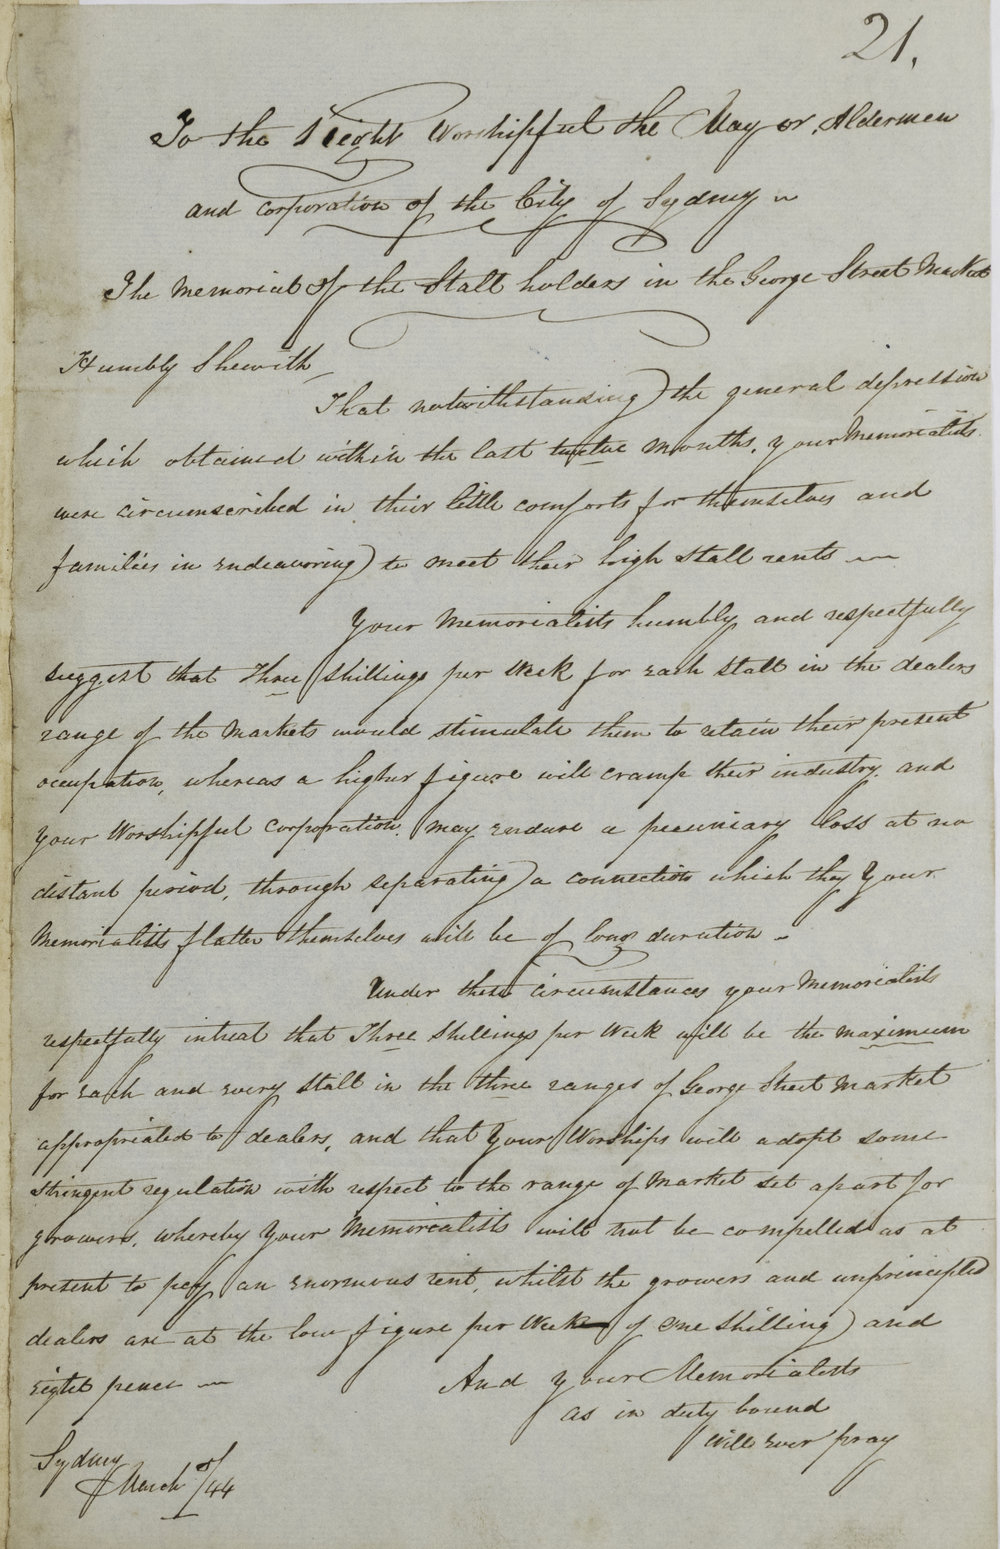 21.
To the Right Worshipful the Mayor, Aldermen
and Corporation of the City of Sydney
The Memorial of the Stall holders in the George Street Market
Humbly Shewith
That notwithstanding the general depression
which obtained within the last twelve months, your Memorialists
were circumscribed in their little comforts for themselves and
families in endeavoring to meet their high Stall rents
Your Memorialists humbly and respectfully
suggest that Three Shillings per Week for each Stall in the dealers
range of the Markets would stimulate them to retain their present
occupation, whereas a higher figure will cramp their industry and
Your Worshipful Corporation may endure a pecuniary loss at no
distant period, through separating a connection which they Your
Memorialists flatter themselves will be of long duration
Under these circumstances your Memorialists
respectfully intreat that Three Shillings per Week will be the maximum
for each and every Stall in the three ranges of George Street Market
appropriated to dealers, and that Your Worships will adopt some
stringent regulation with respect to the range of Market set apart for
growers, whereby Your Memorialists will not be compelled as at
present to pay an enormous rent, whilst the growers and unprincipled
dealers are at the low figure per Week of one Shilling and
eight pence
And your Memorialists
as in duty bound
will ever pray
Sydney
March /44